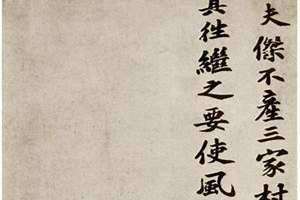 夫傑不產三家村
其往繼之要使風